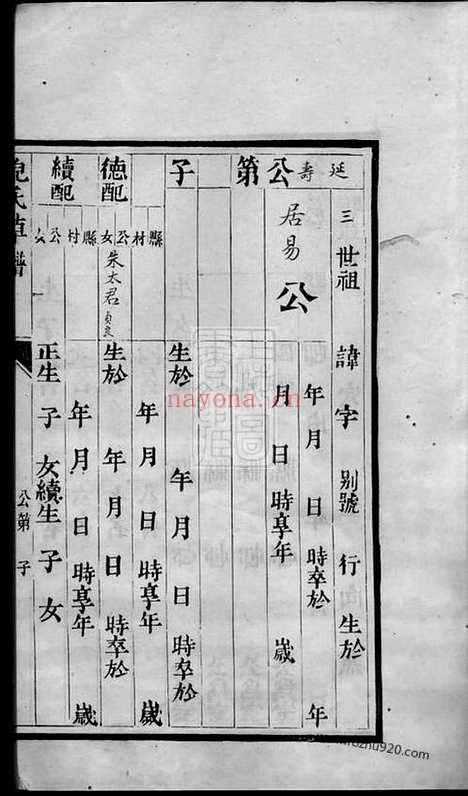 三世祖 諱 字 別號 行 生於
年 月 日 時卒於 年
居易公 月 日 時享年 歲
延壽公第
子 生於 年 月 日 時卒於
縣 村 公 女 年 月 日 時享年 歲
德配 朱太君 生於 年 月 日 時卒於
縣 村 公 女 年 月 日 時享年 歲
續配 正生 子 女續生 子 女
氏草譜 公第 子
nayona.cn
920.com